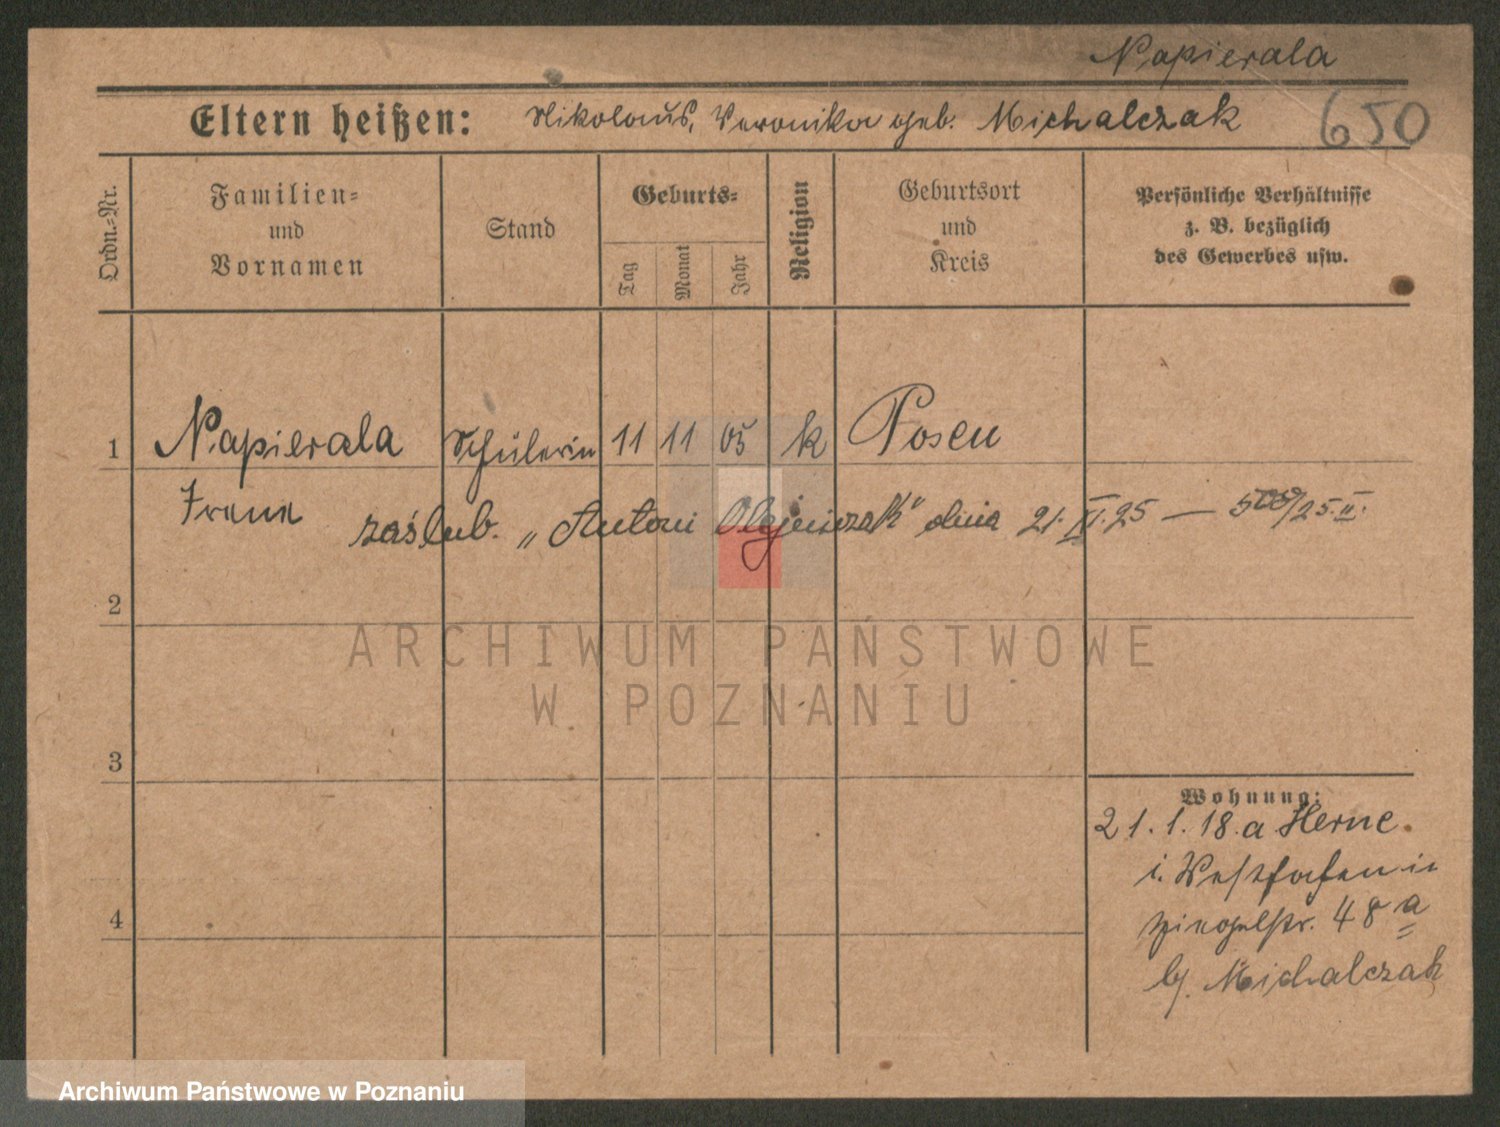 Napierala
Eltern heißen: Nikolaus, Veronika geb. Michalczak
650
Ordn.-Nr.
Familien- und Vornamen
Stand
Geburts-
Tag
Monat
Jahr
Religion
Geburtsort und Kreis
Persönliche Verhältnisse z. B. bezüglich des Gewerbes usw.
1 Napierala Schülerin 11 11 05 k Posen
Irena
zaślub. „Antoni Olejniczak" dnia 21. XI. 25 —
2
ARCHIWUM PAŃSTWOWE
W POZNANIU
3
Wohnung:
21. 1. 18. a Herne
i. Westfalen
48 a
b/. Michalczak
4
Archiwum Państwowe w Poznaniu